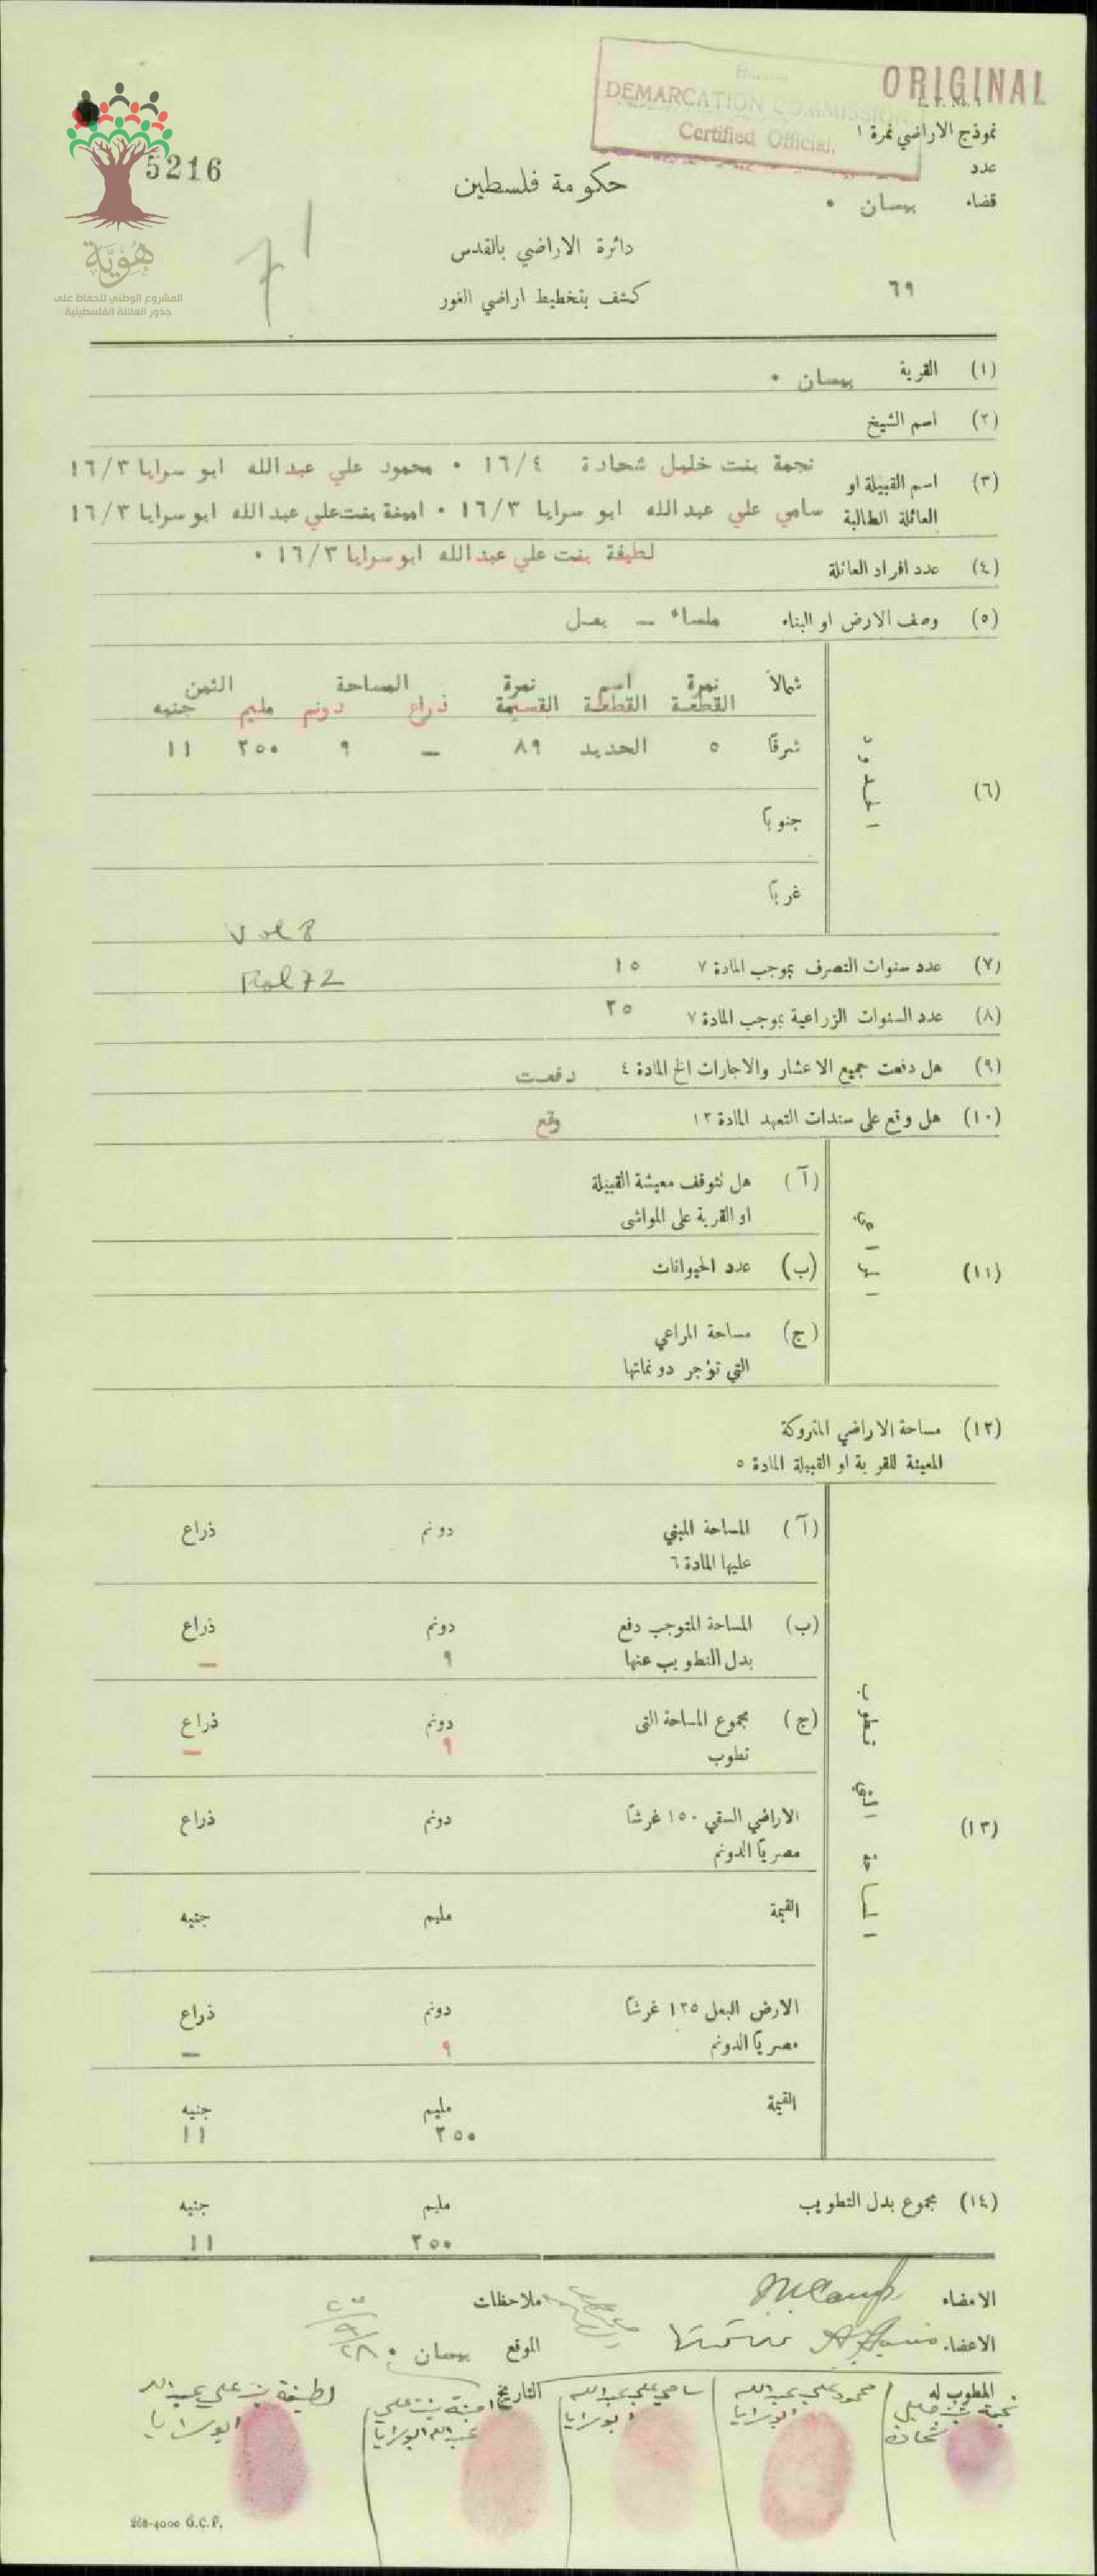 ORIGINAL
DEMARCATION COMMISSION
Certified Official.
L. F. No. 1
نموذج الاراضي نمرة ١
5216
عدد
حكومة فلسطين
قضاء بيسان ٠
دائرة الاراضي بالقدس
هُوِيَّة
المشروع الوطني للحفاظ على
جذور العائلة الفلسطينية
كشف بتخطيط اراضي الغور
٦٩
(١) القرية بيسان ٠
(٢) اسم الشيخ
(٣) اسم القبيلة او
العائلة الطالبة
نجمة بنت خليل شحادة ١٦/٤ ٠ محمود علي عبدالله ابو سرايا ١٦/٣
سامي علي عبدالله ابو سرايا ١٦/٣ ٠ امينة بنت علي عبدالله ابو سرايا ١٦/٣
لطيفة بنت علي عبدالله ابو سرايا ١٦/٣ ٠
(٤) عدد افراد العائلة
(٥) وصف الارض او البناء ملساء — بعل
(٦) الحدود
شمالاً نمرة القطعة اسم القطعة نمرة القسيمة المساحة ذراع دونم الثمن مليم جنيه
شرقاً ٥ الحديد ٨٩ — ٩ ٢٥٠ ١١
جنوباً
غرباً
Vol 8
Fol 72
(٧) عدد سنوات التصرف بموجب المادة ٧ ١٥
(٨) عدد السنوات الزراعية بموجب المادة ٧ ٢٥
(٩) هل دفعت جميع الاعشار والاجارات الخ المادة ٤ دفعت
(١٠) هل وقع على سندات التعهد المادة ١٣ وقع
(١١) المراعي
(آ) هل تتوقف معيشة القبيلة
او القرية على المواشي
(ب) عدد الحيوانات
(ج) مساحة المراعي
التي تؤجر دونماتها
(١٢) مساحة الاراضي المتروكة
المعينة للقرية او القبيلة المادة ٥
(١٣) المساحة التي تطوب
(آ) المساحة المبني دونم ذراع
عليها المادة ٦
(ب) المساحة المتوجب دفع دونم ذراع
بدل التطويب عنها ٩ —
(ج) مجموع المساحة التي دونم ذراع
تطوب ٩ —
الاراضي السقي ١٥٠ غرشاً دونم ذراع
مصرياً الدونم
القيمة مليم جنيه
الارض البعل ١٢٥ غرشاً دونم ذراع
مصرياً الدونم ٩ —
القيمة مليم جنيه
٢٥٠ ١١
(١٤) مجموع بدل التطويب مليم جنيه
٢٥٠ ١١
الامضاء ملاحظات
الاعضاء الموقع بيسان ٠
المطوب له التاريخ
نجمة بنت خليل شحادة
محمود علي عبدالله ابو سرايا
سامي علي عبدالله ابو سرايا
امينة بنت علي عبدالله ابو سرايا
لطيفة بنت علي عبدالله ابو سرايا
268-4000 G.C.P.